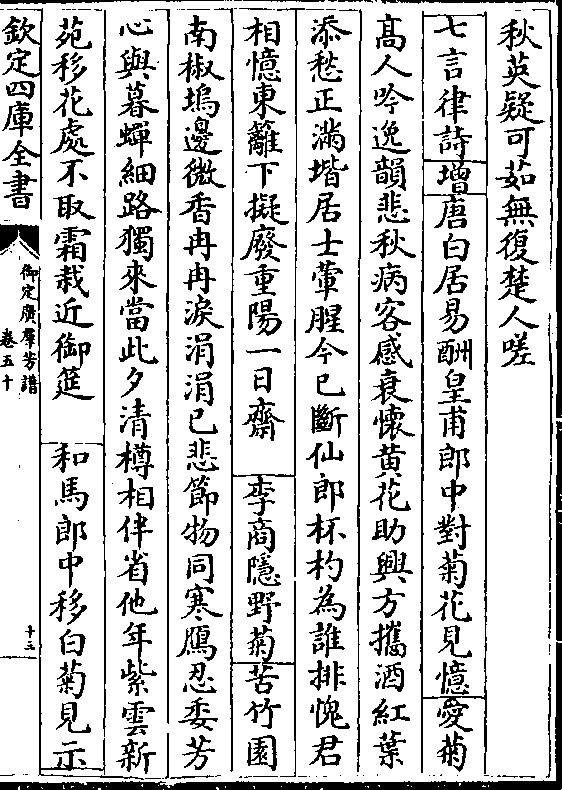 秋英疑可茹無復楚人嗟
七言律詩增唐白居易酬皇甫郎中對菊花見憶愛菊
高人吟逸韻悲秋病客感衰懷黄花助興方攜酒紅葉
添愁正滿堦居士葷腥今已斷仙郎杯杓為誰排愧君
相憶東籬下擬廢重陽一日齋　李商隱野菊苦竹園
南椒塢邊微香冉冉淚涓涓已悲節物同寒鴈忍委芳
心與暮蟬細路獨來當此夕清樽相伴省他年紫雲新
苑移花處不取霜栽近御筵　和馬郎中移白菊見示
欽定四庫全書
御定廣羣芳譜
卷五十
十三